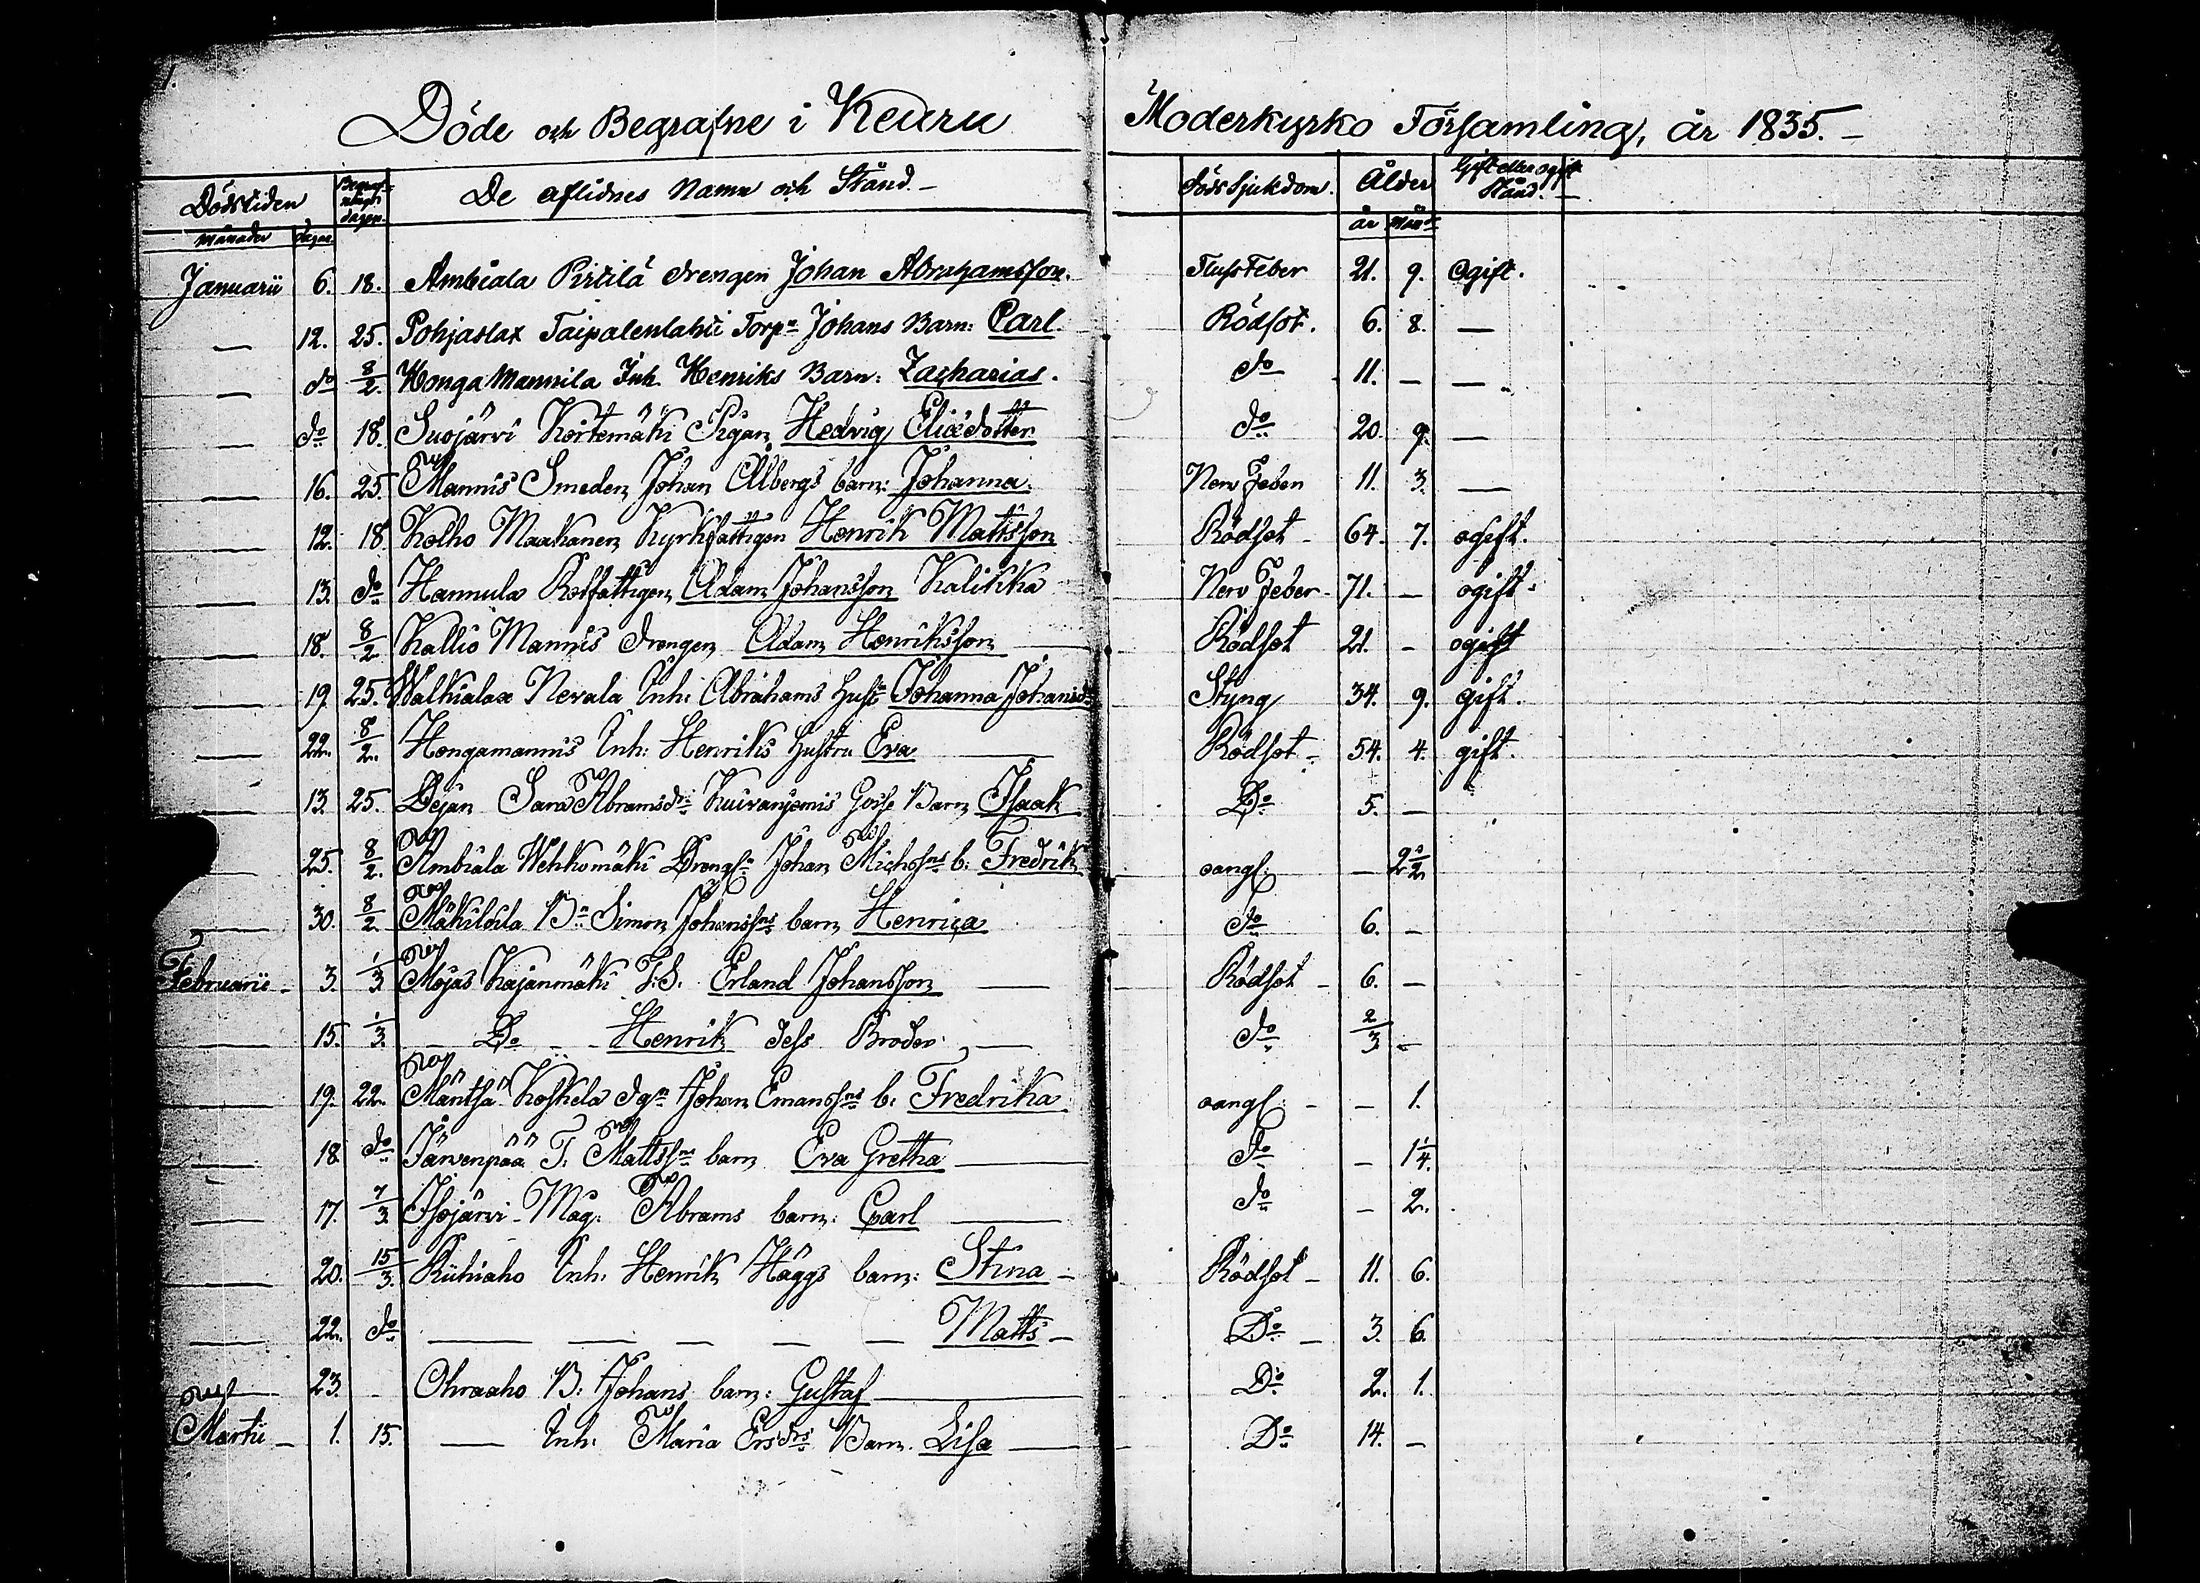 Döde och Begrafne i Keuru Moderkyrko Församling, år 1835.
Dödstiden Begraf-nings dagen De aflidnes Namn och Stånd Döds Sjukdom. Ålder Gift eller ogift Stånd.
Månader dagar år Mån
Januarii 6. 18. Ambiala Pirtilä drengen Johan Abrahamsson. Flussfeber 21. 9. Ogift.
— 12. 25. Pohjaslax Taipalenlahti Torpn Johans Barn: Carl Rödsot. 6. 8. —
— do 8/2 Honga Mannila Inh. Henriks Barn: Zacharias. do 11. — —
— do 18. Suojärvi Kortemäki Pigan Hedvig Eliædotter do 20. 9. —
— 16. 25. Mannis Smeden Johan Albergs barn: Johanna. Nerv Feber 11. 3. —
— 12. 18. Kolho Maakanen Kyrkfattigen Henrik Mattsson Rödsot 64. 7. ogift.
— 13. do Hannula Rotfattigen Adam Johansson Kalikka Nerv Feber 71. — ogift.
— 18. 8/2 Kallio Mannis drengen Adam Henriksson Rödsot 21. — ogift
— 19. 25. Walkialax Nevala Inh: Abrahams Hust Johanna Johansd Styng 34. 9. gift.
— 22. 8/2. Hongamannis Inh: Henriks Hustru Eva Rödsot 54. 4. gift.
13. 25. Pejan Sara Abramsdr Barn Isaak Do 5. —
— 25. 8/2. Ambiala Wehkomäki Johan Michelsns b: Fredrik oangf. — 2 1/2
— 30. 8/2 Mäkilöila Bn Simon Johanssns barn Henrica do 6. —
Februarii 3. 1/3 Mojas Kajanmäki T:S. Erland Johansson — Rödsot 6. —
— 15. 1/3. — Do — Henrik dess Broder — do 2/3 —
— 19. 22. Mänthä Koskela Johan Emanssns b: Fredrika oangf. — 1.
— 18. do Järvenpää T. Mattssns barn Eva Gretha — do — 1 1/4.
— 17. 7/3 Isojärvi Mag: Abrams barn: Carl — do — 2.
— 20. 15/3. Riihiaho Inh. Henrik Häggs barn: Stina Rödsot 11. 6.
— 22. do — — — — — Matts Do 3. 6.
— 23. Ohraaho B. Johans barn: Gustaf — Do 2. 1.
Martii 1. 15. — Inh: Maria Ersdrs Barn. Lisa — Do 14. —